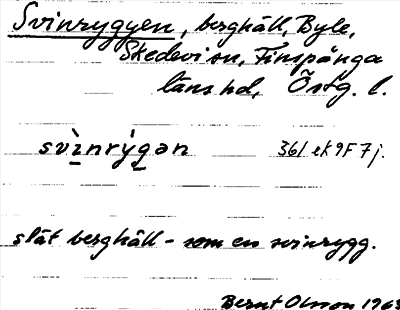 Svinryggen, berghäll, Byle,
Skedevi sn, Finspånga
läns hd, Östg. l.
svìnrýgən 36/ ek 9F 7j.
slät berghäll - som en svinrygg.
Bernt Olsson 1963